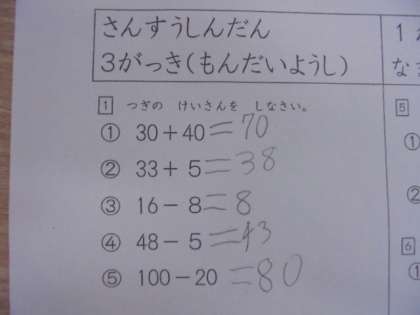 さんすうしんだん
3がっき(もんだいようし)
1 つぎの けいさんを しなさい。
① 30+40=70
② 33+5=38
③ 16-8=8
④ 48-5=43
⑤ 100-20=80
1
な
5
①
②
6
①